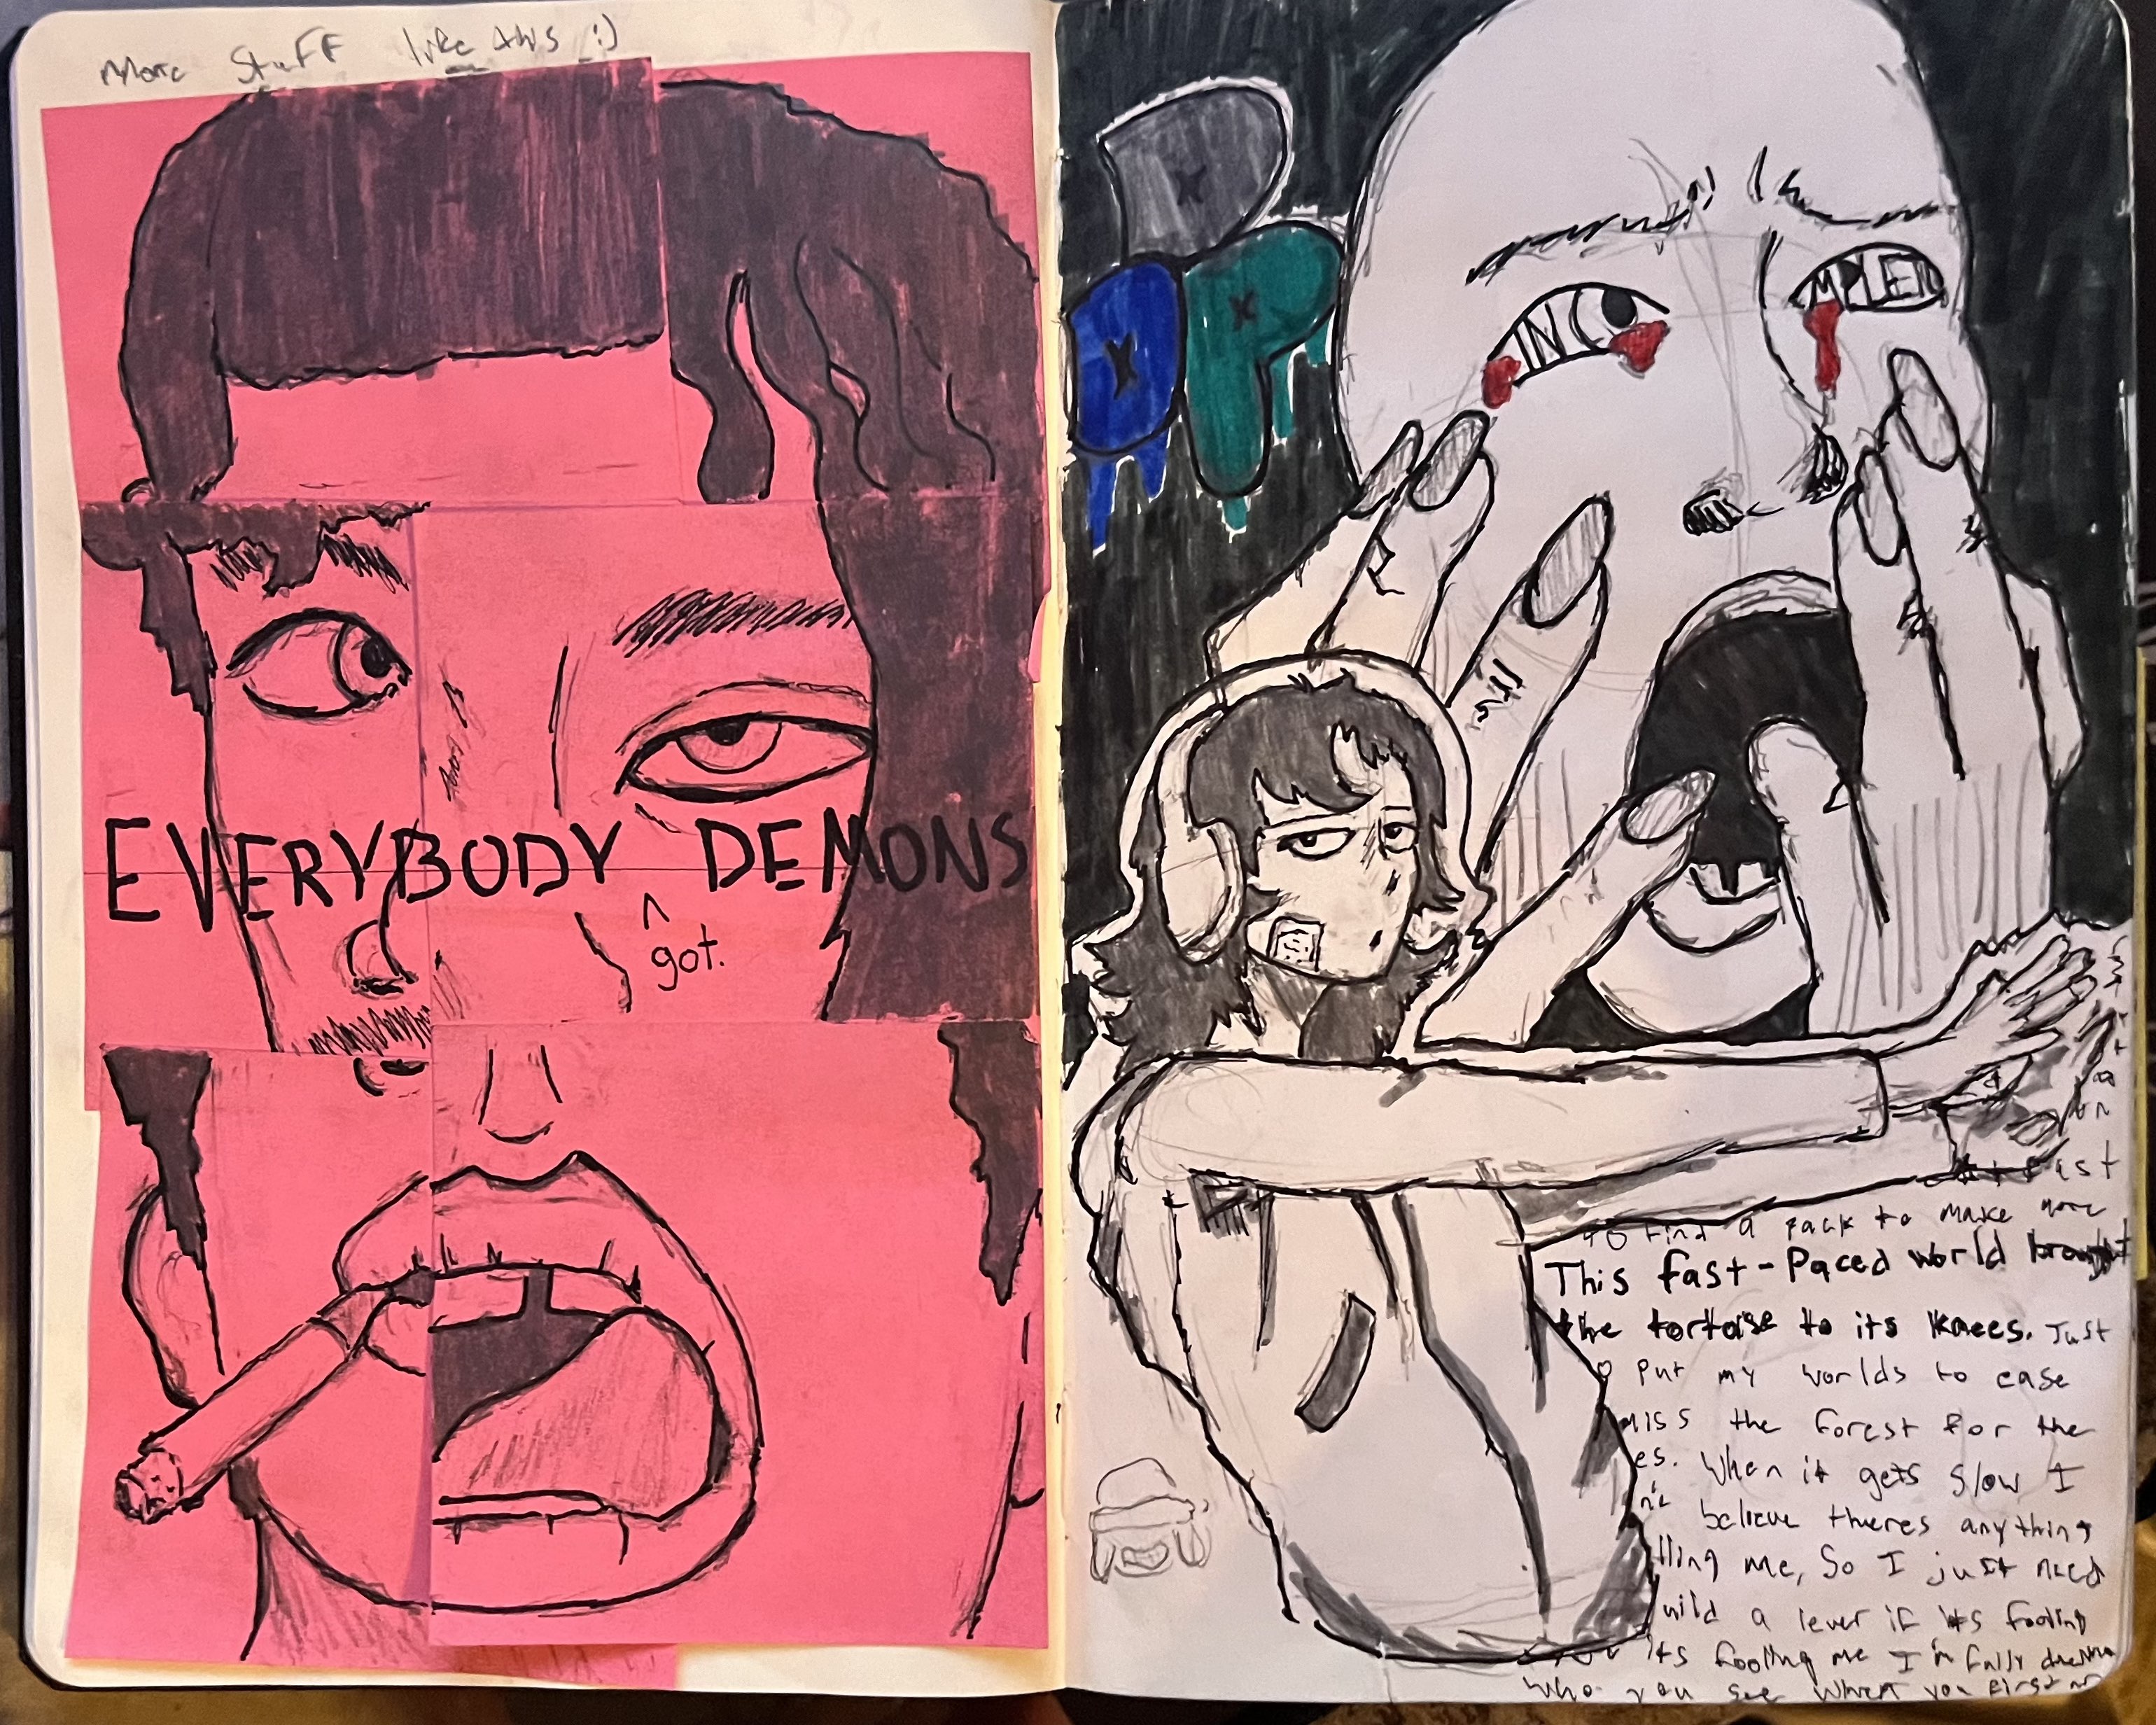 More Stuff like this :)
EVERYBODY DEMONS
got.
INC
MPLETE
to find a pack to make more
This fast-Paced world brought
the tortoise to its knees. Just
put my worlds to ease
miss the forest for the
es. When it gets slow I
believe theres anything
lling me, So I just need
uild a lever if its fooling
its fooling me I'm fully
who you see when you first